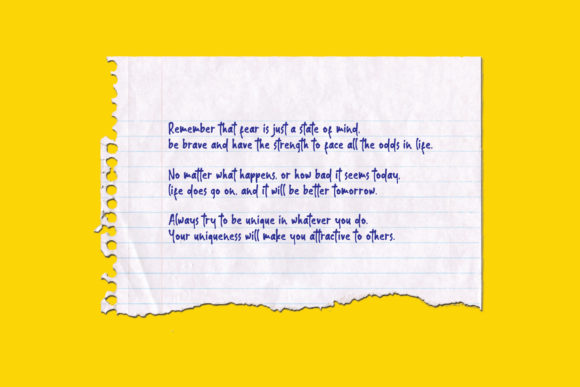 Remember that fear is just a state of mind,
be brave and have the strength to face all the odds in life.
No matter what happens, or how bad it seems today,
life does go on, and it will be better tomorrow.
Always try to be unique in whatever you do.
Your uniqueness will make you attractive to others.